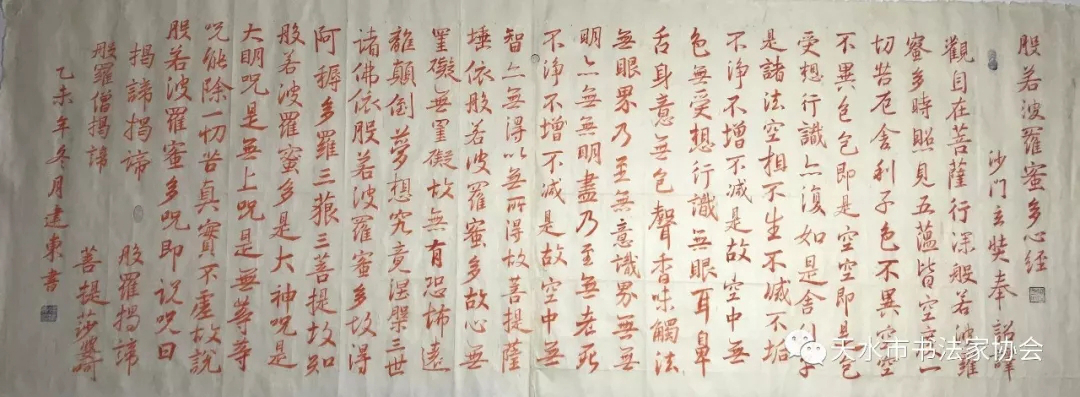 般若波羅蜜多心經
沙门玄奘奉 詔譯
觀自在菩薩行深般若波羅
蜜多時照見五蕴皆空度一
切苦厄舍利子色不異空空
不異色色即是空空即是色
受想行識亦復如是舍利子
是諸法空相不生不滅不垢
不浄不增不减是故空中無
色無受想行識無眼耳鼻
舌身意無色聲香味觸法
無眼界乃至無意識界無無
明亦無無明盡乃至無老死
不浄不增不减是故空中無
智亦無得以無所得故菩提薩
埵依般若波羅蜜多故心無
罣礙無罣礙故無有恐怖遠
離顛倒夢想究竟涅槃三世
诸佛依般若波羅蜜多故得
阿耨多羅三藐三菩提故知
般若波羅蜜多是大神呪是
大明呪是無上呪是無等等
呪能除一切苦真實不虛故說
般若波羅蜜多呪即说呪曰
揭諦揭諦 般羅揭諦
般羅僧揭諦 菩提莎婆訶
乙未年冬月建東書
天水市书法家协会